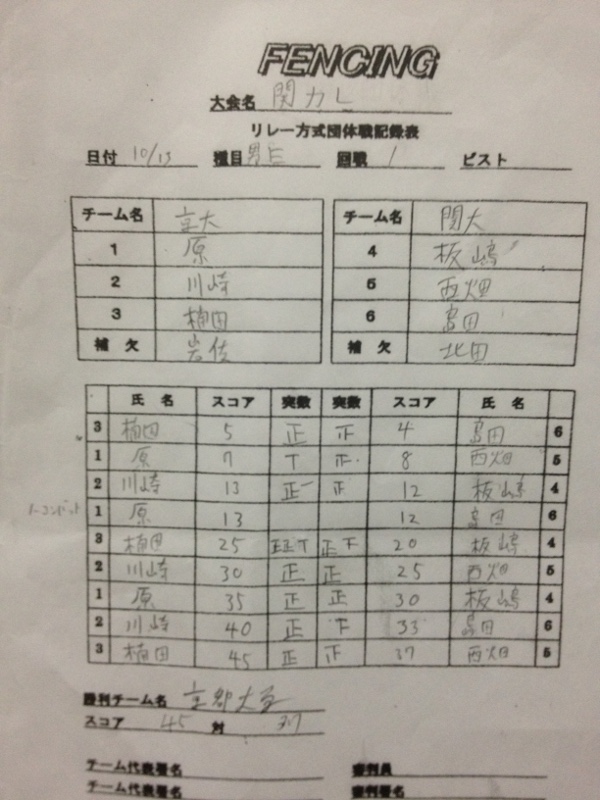 FENCING
大会名 関カレ
リレー方式団体戦記録表
日付 10/13 種目 男E 回戦 1 ピスト
チーム名 京大 チーム名 関大
1 原 4 板嶋
2 川崎 5 西畑
3 楠田 6 島田
補欠 岩佐 補欠 北田
氏名 スコア 突数 突数 スコア 氏名
3 楠田 5 正 正 4 島田 6
1 原 7 T 正 8 西畑 5
2 川崎 13 正一 正 12 板嶋 4
ノーコンバット 1 原 13 12 島田 6
3 楠田 25 正正T 正下 20 板嶋 4
2 川崎 30 正 正 25 西畑 5
1 原 35 正 正 30 板嶋 4
2 川崎 40 正 下 33 島田 6
3 楠田 45 正 正 37 西畑 5
勝利チーム名 京都大学
スコア 45 対 37
チーム代表署名 審判員
チーム代表署名 審判署名